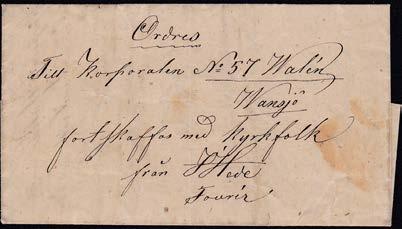 Ordres
Till Korporalen No 57 Walén
Wansjö
fortskaffas med Kyrkfolk
från Hede
Fourir